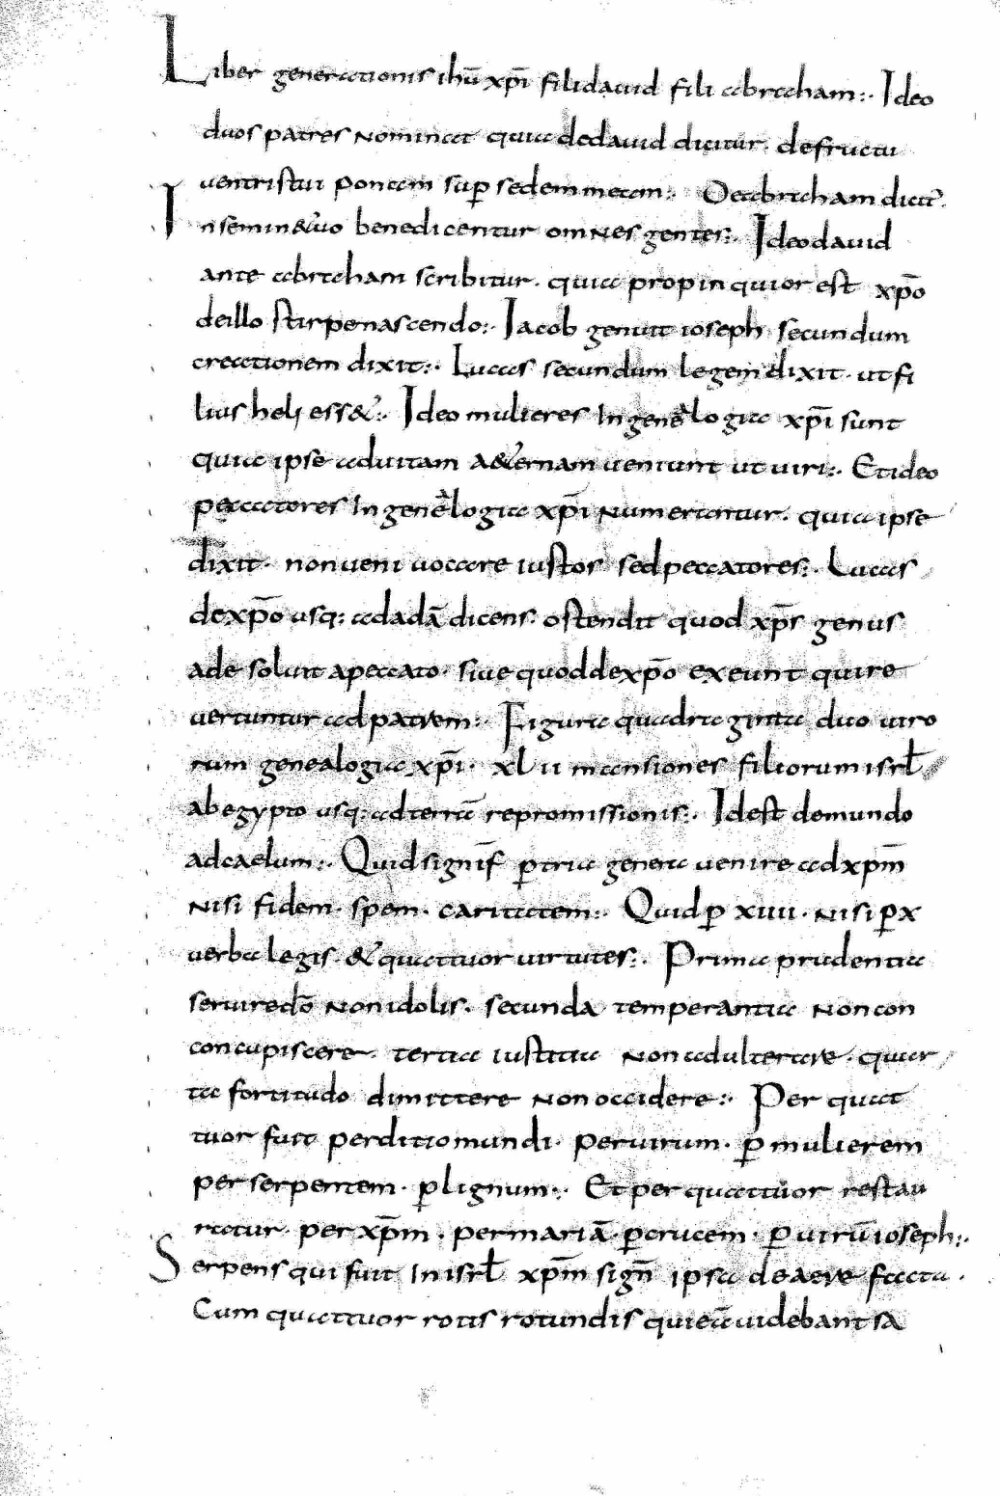 Liber generationis ihū xp̄i fili dauid fili abraham:. Ideo
duos patres nominat quia de dauid dicitur. de fructu
uentris tui ponam sup̄ sedem meam:. De abraham dicit̄.
In semine tuo benedicentur omnes gentes:. Ideo dauid
ante abraham scribitur. quia propinquior est xp̄o
de illo stirpe nascendo:. Iacob genuit ioseph secundum
creationem dixit:. Lucas secundum legem dixit. ut fi
lius heli ess&:. Ideo mulieres in genelogia xp̄i sunt
quia ipse ad uitam a&ernam ueniunt ut uiri:. Et ideo
peccatores in genelogia xp̄i numerantur. quia ipse
dixit. non ueni uocare iustos sed peccatores:. Lucas
de xp̄o usq: ad adā dicens. ostendit quod xp̄s genus
ade soluit a peccato. siue quod de xp̄o exeunt qui re
uertuntur ad patrem:. Figura quadraginta duo uiro
rum genealogia xp̄i. xlii mansiones filiorum isrl̄
ab egypto usq: ad terrā repromissionis:. Id est de mundo
ad caelum:. Quid signif̄ p̄ tria genera uenire ad xp̄m
nisi fidem. spem. caritatem:. Quid p̄ xiiii. nisi p̄ x
uerba legis. & quattuor uirtutes:. Prima prudentia
seruire dō non idolis. secunda temperantia non con
concupiscere. tertia iustitia non adulterare. quar
ta fortitudo dimittere non occidere:. Per quat
tuor fuit perditio mundi. per uirum. p̄ mulierem
per serpentem. p̄ lignum:. Et per quattuor restau
ratur. per xp̄m. per mariā. p̄ crucem. p̄ uirū ioseph:.
Serpens qui fuit in isrl̄ xp̄m sign̄ ipsa de aere facta.
Cum quattuor rotis rotundis qui eā uidebant sa